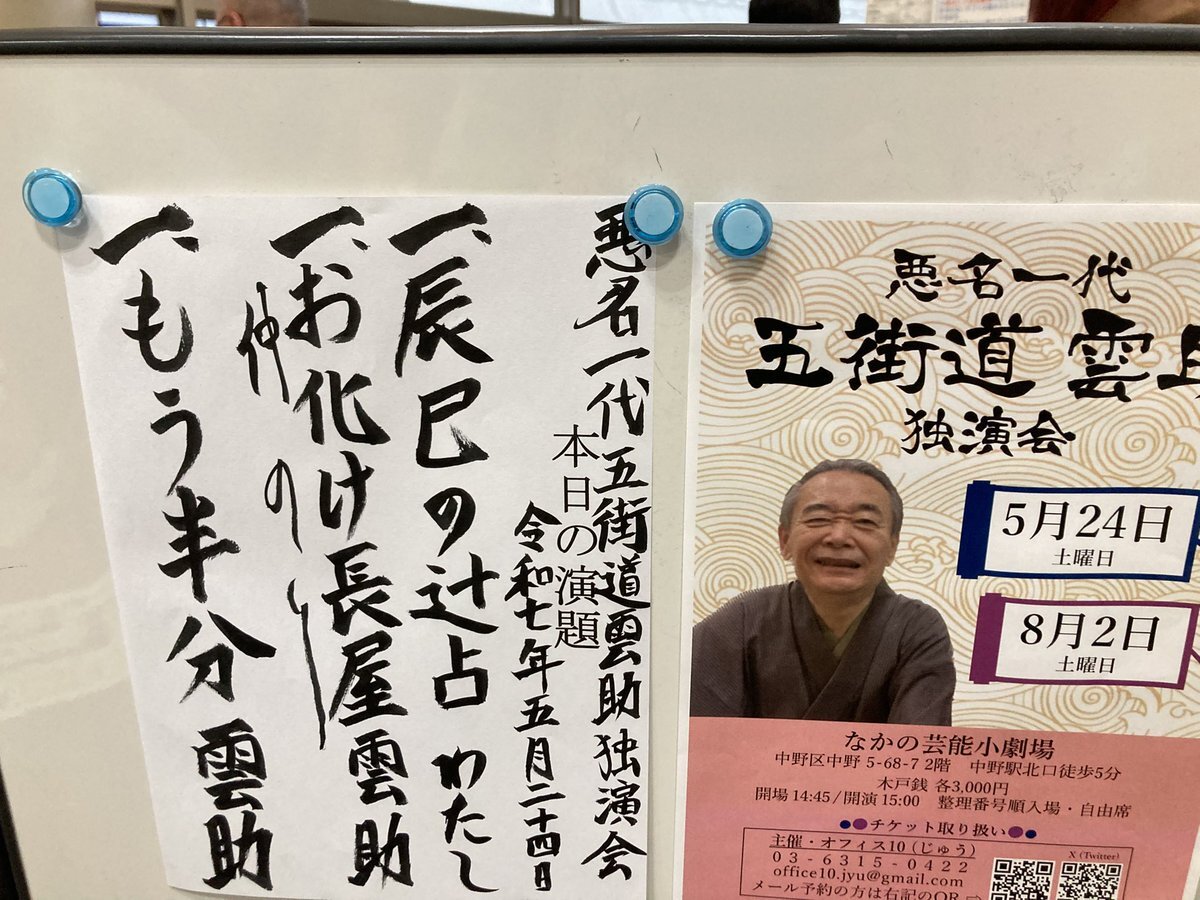 悪名一代五街道雲助独演会
本日の演題
令和七年五月二十四日
一、辰巳の辻占 わたし
一、お化け長屋 雲助
仲のり
一、もう半分 雲助
悪名一代
五街道 雲助
独演会
5月24日
土曜日
8月2日
土曜日
なかの芸能小劇場
中野区中野 5-68-7 2階 中野駅北口徒歩5分
木戸銭 各3,000円
開場 14:45/開演 15:00 整理番号順入場・自由席
チケット取り扱い
主催・オフィス10(じゅう)
03-6315-0422
office10.jyu@gmail.com
メール予約の方は右記のQR ⇨
X(Twitter)